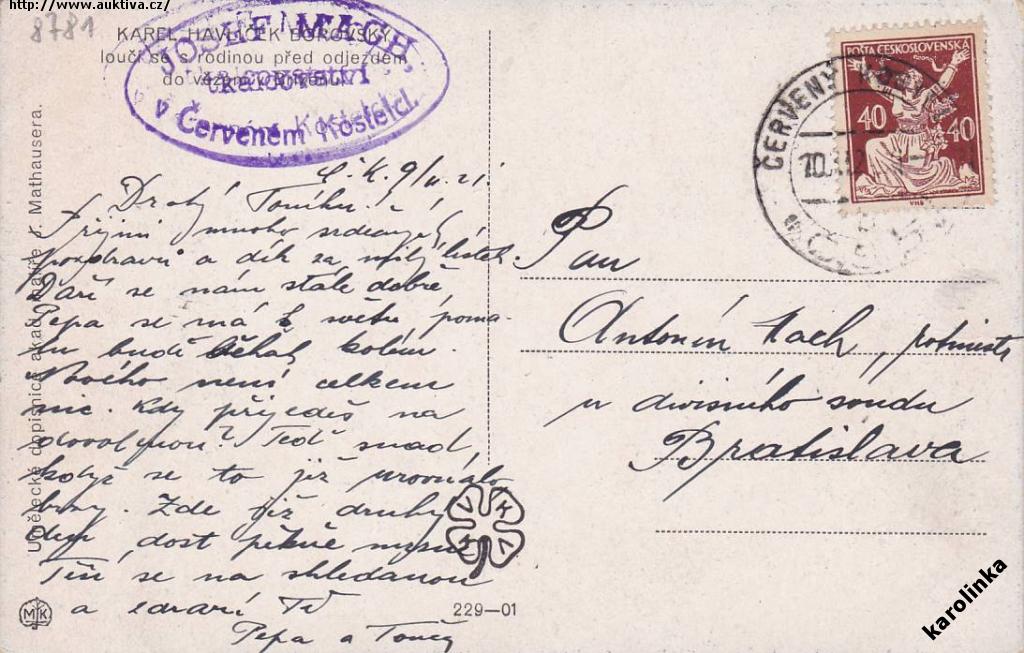 http://www.auktiva.cz/
8781
KAREL HAVLÍČEK BOROVSKÝ
loučí se s rodinou před odjezdem
do
JOSEF MACH
tkalcovství
v Červeném Kostelci.
Č. K. 9/ 21.
Drahý Toníku!
Přijmi mnoho srdečných
pozdravů a dík za milý lístek.
Daří se nám stále dobře,
Pepa se má k světu, poma-
lu bude běhat kolem.
Nového není celkem
nic. Kdy přijedeš na
dovolenou? Teď snad,
když se to již urovnalo
Zde již druhý
den dost pěkně
Těší se na shledanou
a zdraví Tě
Pepa a
Umělecké dopisnice akad. malíře J. Mathausera.
MK
229—01
VKKV
POŠTA ČESKOSLOVENSKÁ
40 40
ČERVENÝ
Pan
Antonín Mach, rotmistr
u divisního soudu
Bratislava
karolinka